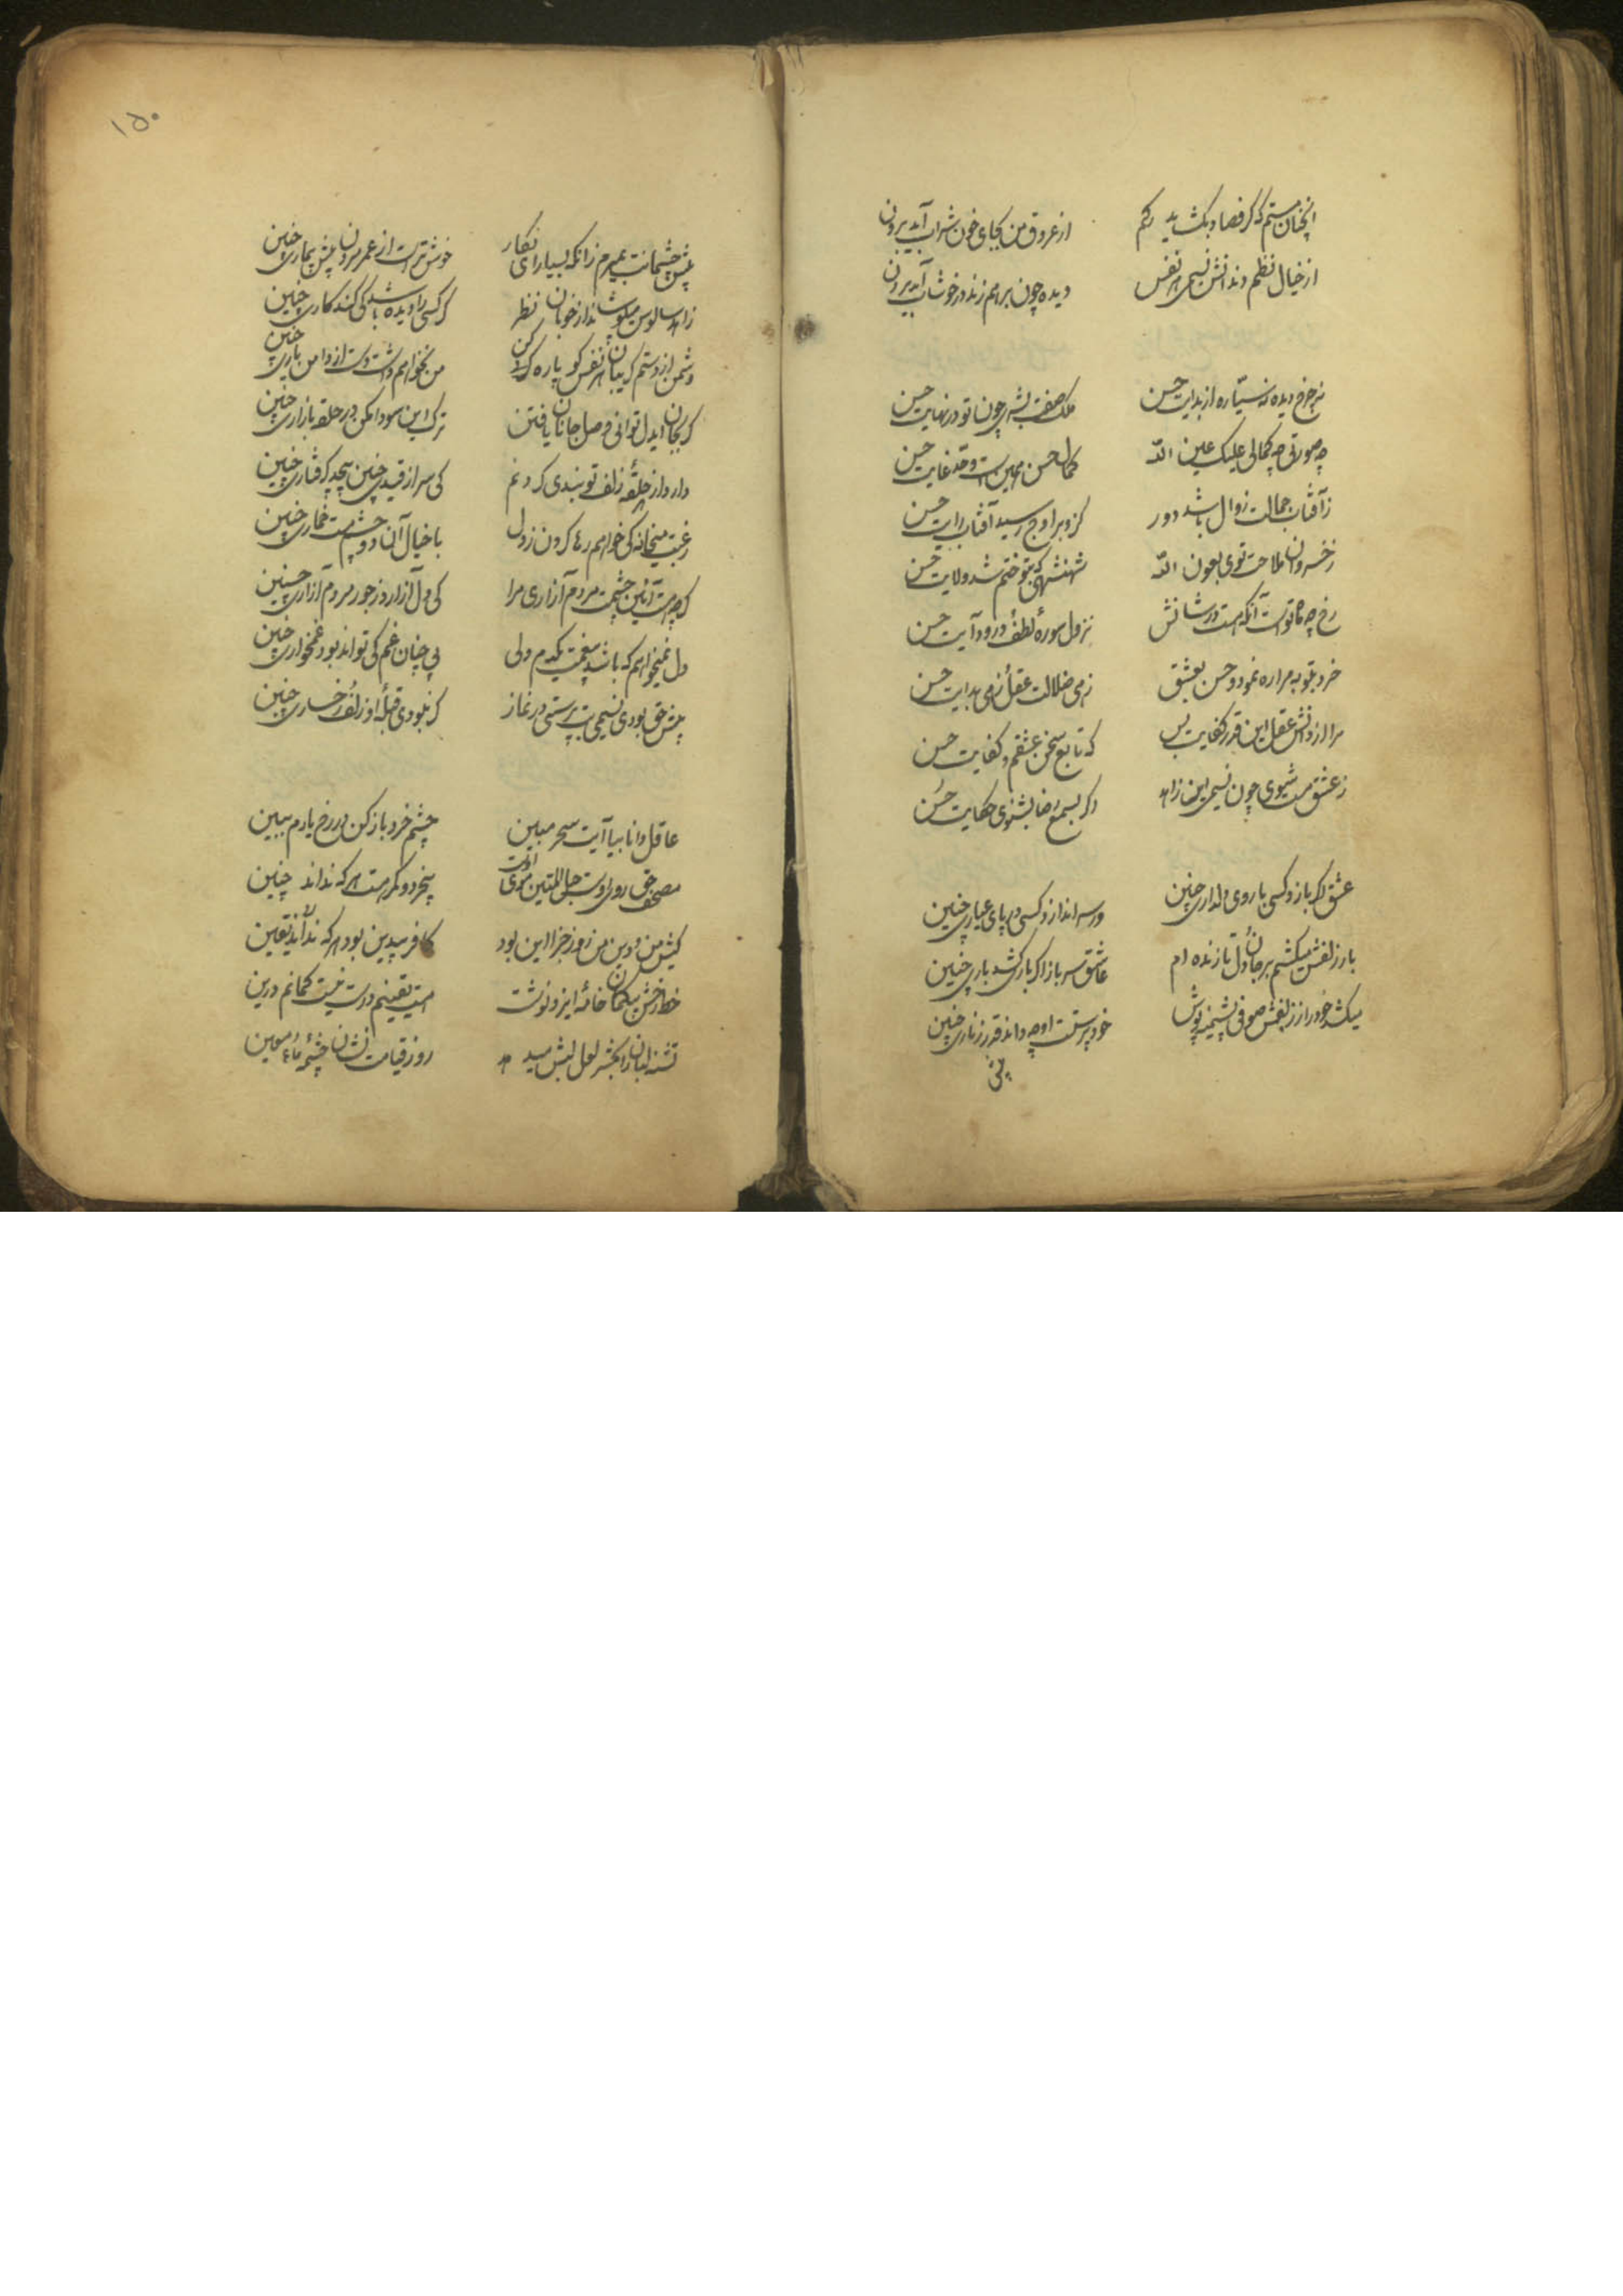 آنچنان مستم که گر فصاد بگشاید رگم
از عروق من بجای خون شراب آید برون
از خیال نظم دندانش نسیمی هر نفس
دیده چون بر هم زند در خوشاب آید برون
نه چرخ دیده نه سیاره از بدایت حسن
ملک صفت بشری چون تو در نهایت حسن
چه صورتی چه کمالی علیک عین الله
کمال حسن همین است و حد غایت حسن
ز آفتاب جمالت زوال باشد دور
کزو بر اوج رسید آفتاب رایت حسن
ز خسروان ملاحت توی بعون الله
شهنشهی که بتو ختم شد ولایت حسن
رخ چو ماه تو است آنکه هست در شانش
نزول سوره لطف و درود آیت حسن
خرد بتوبه مرا ره نمود و حسن بعشق
زهی ضلالت عقل و زهی هدایت حسن
مرا ز دانش و عقل این قدر کفایت بس
که تابع سخن عشقم و کفایت حسن
ز عشق مست شوی چون نسیمی این زاهد
اگر بسمع رضا بشنوی حکایت حسن
عشق اگر بازد کسی با روی دلداری چنین
ور سر اندازد کسی در پای عیاری چنین
بار زلفش میکشم بر جان و دل تا زنده ام
عاشق سرباز اگر باری کشد باری چنین
میکشد خود را ز زلفش صوفی پشمینه پوش
خود پرست او چه داند قدر زناری چنین
پیش
۱۵۰
پیش چشمانت بمیرم زانکه بسیار ای نگار
خوشترست از عمر مردن پیش بیماری چنین
زاهد سالوس میپوشاند از خوبان نظر
گر کسی را دیده باشد کی کند کاری چنین
دشمن ار دستم گریبان هر نفس گو پاره کن
من نخواهم داشت دست از دامن یاری چنین
گر بجان ایدل توانی وصل جانان یافتن
ترک این سودا مکن در حلقه بازاری چنین
دارد از هر حلقه زلف تو بندی گردنم
کی سر از قید چنین پیچد گرفتاری چنین
رغبت میخانه کی خواهم رها کردن ز دل
با خیال آن دو چشم مست خماری چنین
گرچه هست آئین چشمت مردم آزاری مرا
کی دل آزارد ز جور مردم آزاری چنین
دل نمیخواهم که باشد بیغمت یکدم ولی
بی چنان غم کی تواند بود غمخواری چنین
پیش حق بودی نسیمی بت پرستی در نماز
گر نبودی قبله او زلف و رخساری چنین
عاقل و دانا بیا آیت سحر مبین
چشم خرد باز کن در رخ یارم ببین
مصحف حق روی اوست حبل المتین موی اوست
بیخرد و گمره است هر که نداند چنین
کیش من و دین من روز جزا این بود
کافر بیدین بود هر که نداند یقین
خط رخش بیگمان خامه ایزد نوشت
هست یقینم درست نیست گمانم درین
تشنه لبان را بحشر لعل لبش میدهد
روز قیامت نشان چشمه ماء معین